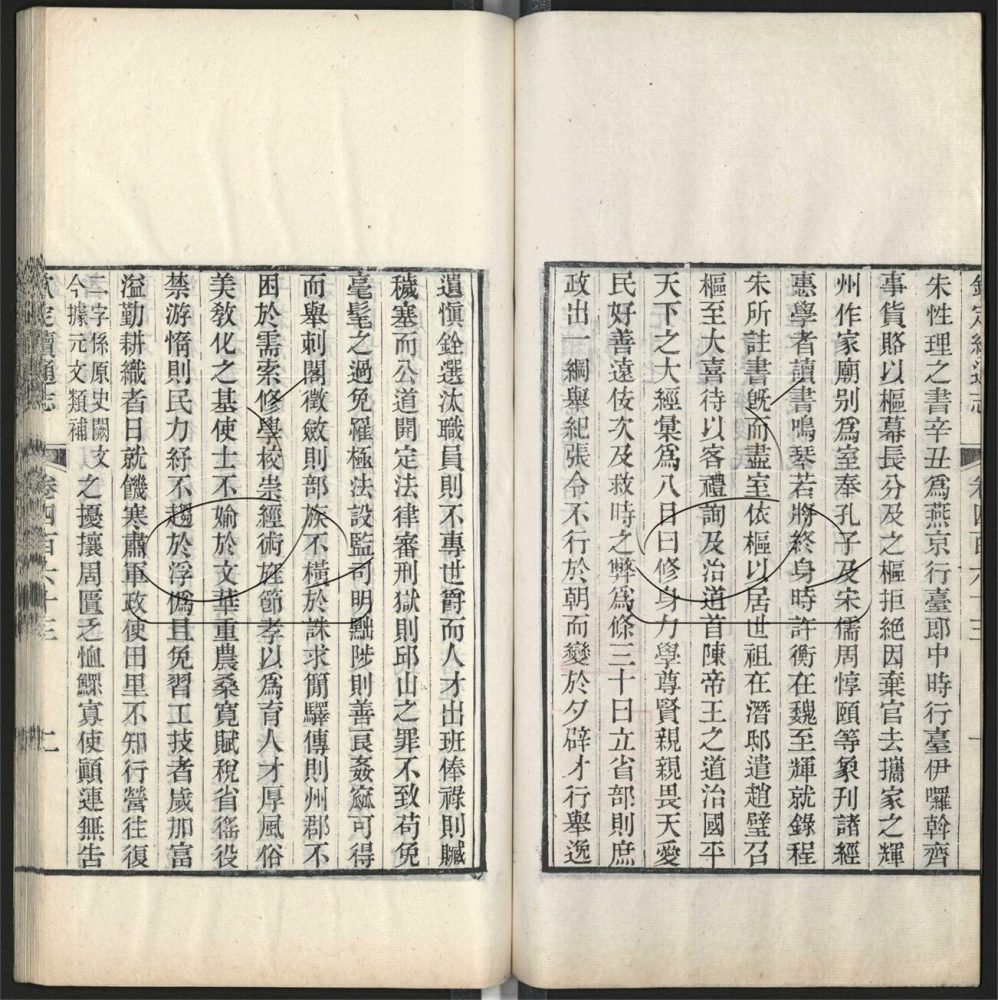 朱性理之書辛丑爲燕京行臺郎中時行臺伊囉斡齊
事貨賂以樞幕長分及之樞拒絶因棄官去攜家之輝
州作家廟别爲室奉孔子及宋儒周惇頤等象刊諸經
惠學者讀書鳴琴若將終身時許衡在魏至輝就錄程
朱所註書旣而盡室依樞以居世祖在潛邸遣趙璧召
樞至大喜待以客禮詢及治道首陳帝王之道治國平
天下之大經彚爲八目曰修身力學尊賢親親畏天愛
民好善遠佞次及救時之弊爲條三十曰立省部則庶
政出一綱舉紀張令不行於朝而變於夕辟才行舉逸
遺愼銓選汰職員則不專世爵而人才出班俸祿則贓
穢塞而公道開定法律審刑獄則邱山之罪不致苟免
毫髦之過免罹極法設監司明黜陟則善良姦窳可得
而舉刺閣徵斂則部族不橫於誅求簡驛傳則州郡不
困於需索修學校崇經術旌節孝以爲育人才厚風俗
美敎化之基使士不媮於文華重農桑寬賦稅省徭役
禁游惰則民力紓不趨於浮僞且免習工技者歲加富
溢勤耕織者日就饑寒肅軍政使田里不知行營往復
二字係原史闕文
今據元文類補
之擾攘周匱乏恤鰥寡使顚連無吿
欽定續通志
卷四百六十三
二